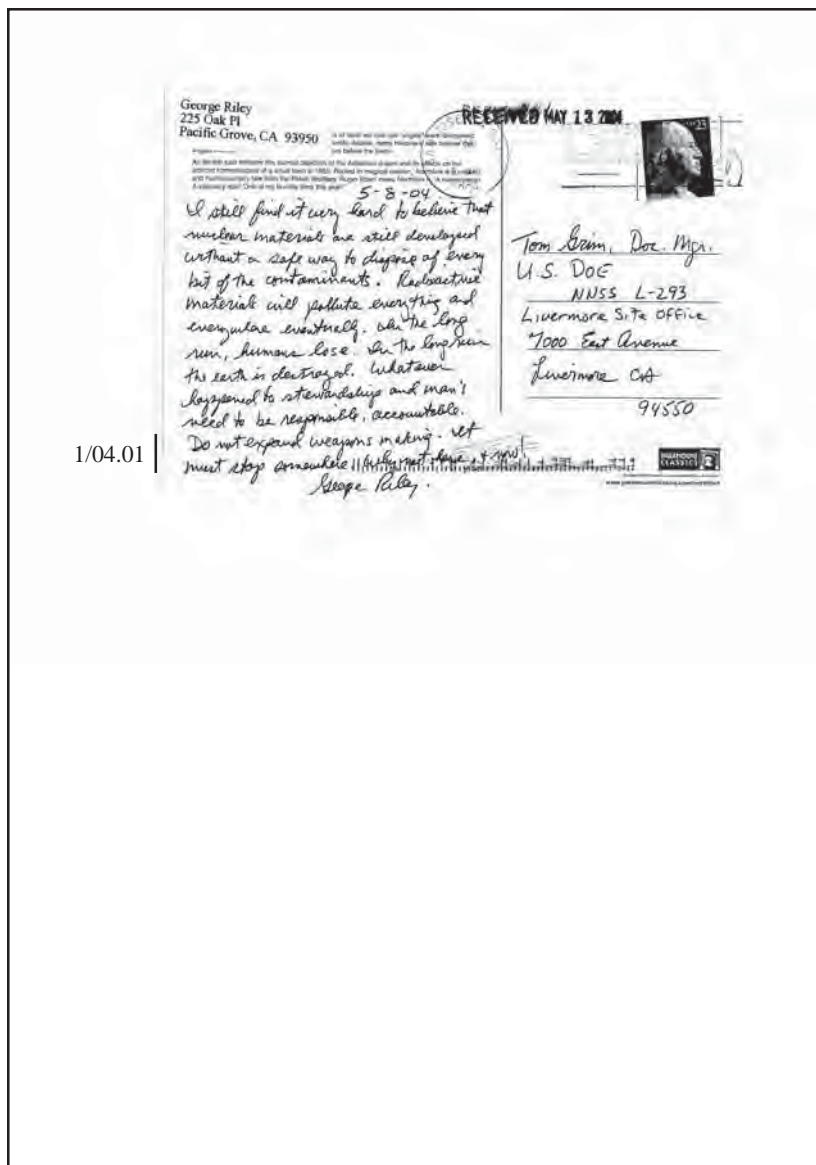 George Riley
225 Oak Pl
Pacific Grove, CA 93950
RECEIVED MAY 13 2004
23
5-8-04
I still find it very hard to believe that
nuclear materials are still developed
without a safe way to dispose of every
bit of the contaminants. Radioactive
materials will pollute everything and
everywhere eventually. In the long
run, humans lose. In the long run
the earth is destroyed. Whatever
happened to stewardship and man's
need to be responsible, accountable.
Do not expand weapons making. It
must stop somewhere why not here & now!
George Riley.
Tom Grim, Doc. Mgr.
U.S. DOE
NNSS L-293
Livermore Site Office
7000 East Avenue
Livermore CA
94550
1/04.01
CLASSICS